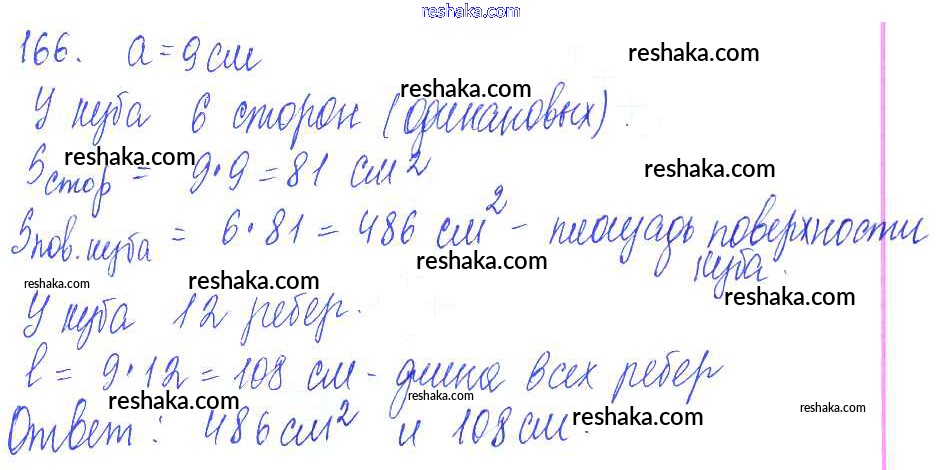 reshaka.com
166. a = 9 см
reshaka.com
У куба 6 сторон (одинаковых).
reshaka.com
Sстор = 9·9 = 81 см²
reshaka.com reshaka.com
Sпов. куба = 6·81 = 486 см² - площадь поверхности
reshaka.com reshaka.com
куба.
reshaka.com reshaka.com reshaka.com
У куба 12 ребер.
l = 9·12 = 108 см - длина всех ребер
reshaka.com reshaka.com
reshaka.com reshaka.com reshaka.com
Ответ: 486 см² и 108 см.
reshaka.com reshaka.com